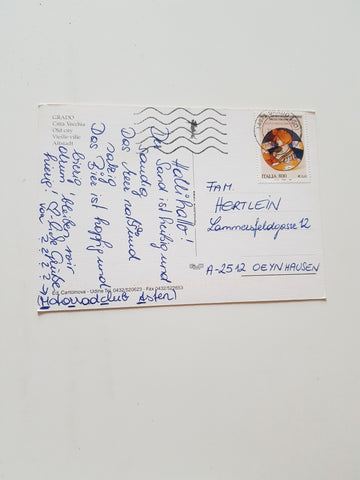 GRADO
Città Vecchia
Old city
Vieille ville
Altstadt
Halli hallo!
Der Sand ist heißig und
sandig
Das Meer naß und
salzig
Das Bier ist hopfig und
bierig
drum bleiben wir
hierig!
Liebe Grüße
von
(Motorradclub Asten)
FAM.
HERTLEIN
Lammersfeldgasse 12
A-2512 OEYNHAUSEN
ITALIA 800
Ed. Cartolnova - Udine Tel. 0432/520623 - Fax 0432/522653